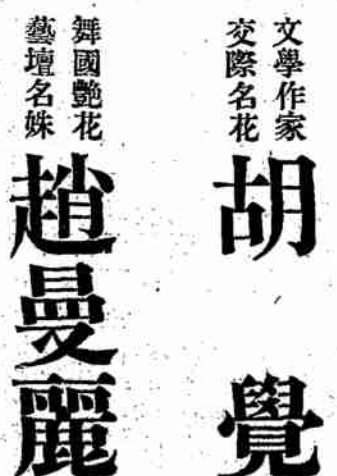 文學作家
交際名花
胡覺
舞國艷花
藝壇名姝
趙曼麗